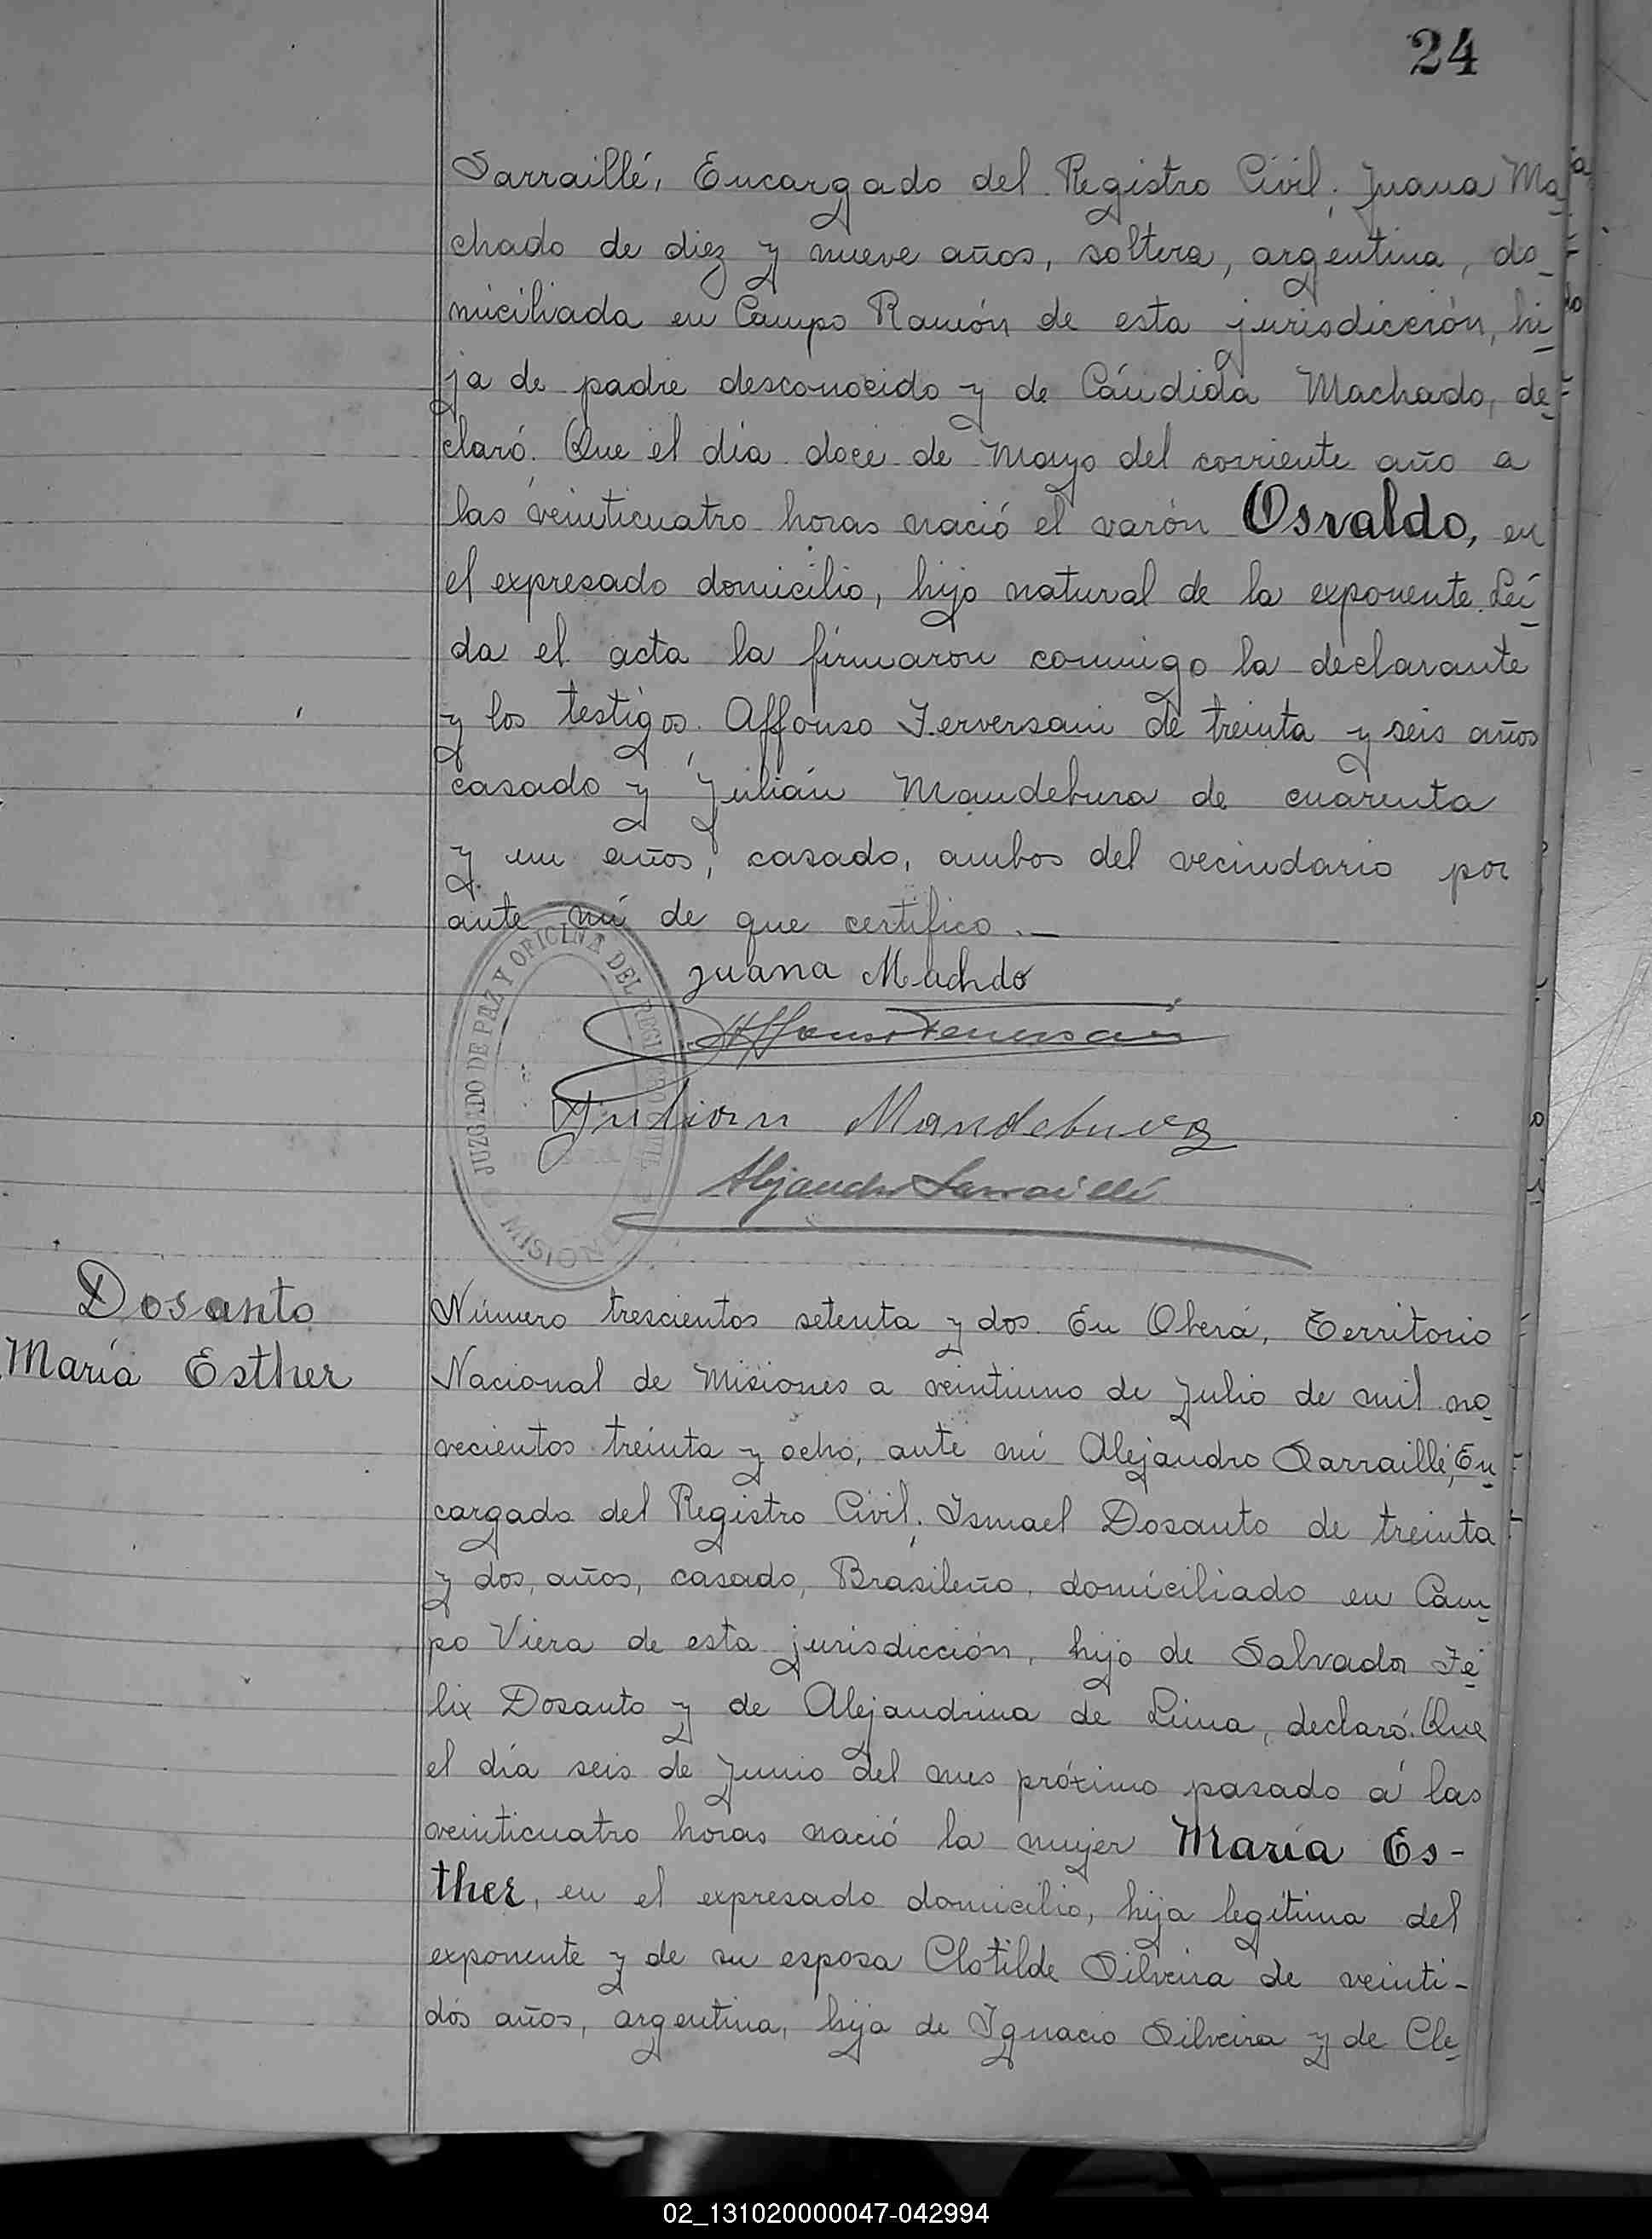 24
Sarraillé, Encargado del Registro Civil. Juana Ma
chado de diez y nueve años, soltera, argentina, do_
miciliada en Campo Ramón de esta jurisdicción, hi_
ja de padre desconocido y de Cándida Machado, de_
claró. Que el día doce de Mayo del corriente año a
las veinticuatro horas nació el varón Osvaldo, en
el expresado domicilio, hijo natural de la exponente. Leí_
da el acta la firmaron conmigo la declarante
y los testigos. Affonso Ferversani de treinta y seis años
casado y Julián Mandebura de cuarenta
y un años, casado, ambos del vecindario por
ante mí de que certifico._
JUZGADO DE PAZ Y OFICINA DEL REGISTRO CIVIL
MISIONES
Juana Machdo
Affonso Ferversani
Julian Mandebura
Alejandro Sarraillé
Dosanto
María Esther
Número trescientos setenta y dos. En Oberá, Territorio
Nacional de Misiones a veintiuno de Julio de mil no_
vecientos treinta y ocho, ante mí Alejandro Sarraillé, En_
cargado del Registro Civil. Ismael Dosanto de treinta
y dos, años, casado, Brasileño, domiciliado en Cam_
po Viera de esta jurisdicción, hijo de Salvador Fe_
lix Dosanto y de Alejandrina de Lima, declaró. Que
el día seis de Junio del mes próximo pasado á las
veinticuatro horas nació la mujer María Es-
ther, en el expresado domicilio, hija legítima del
exponente y de su esposa Clotilde Silveira de veinti-
dós años, argentina, hija de Ignacio Silveira y de Cle_
02_131020000047-042994